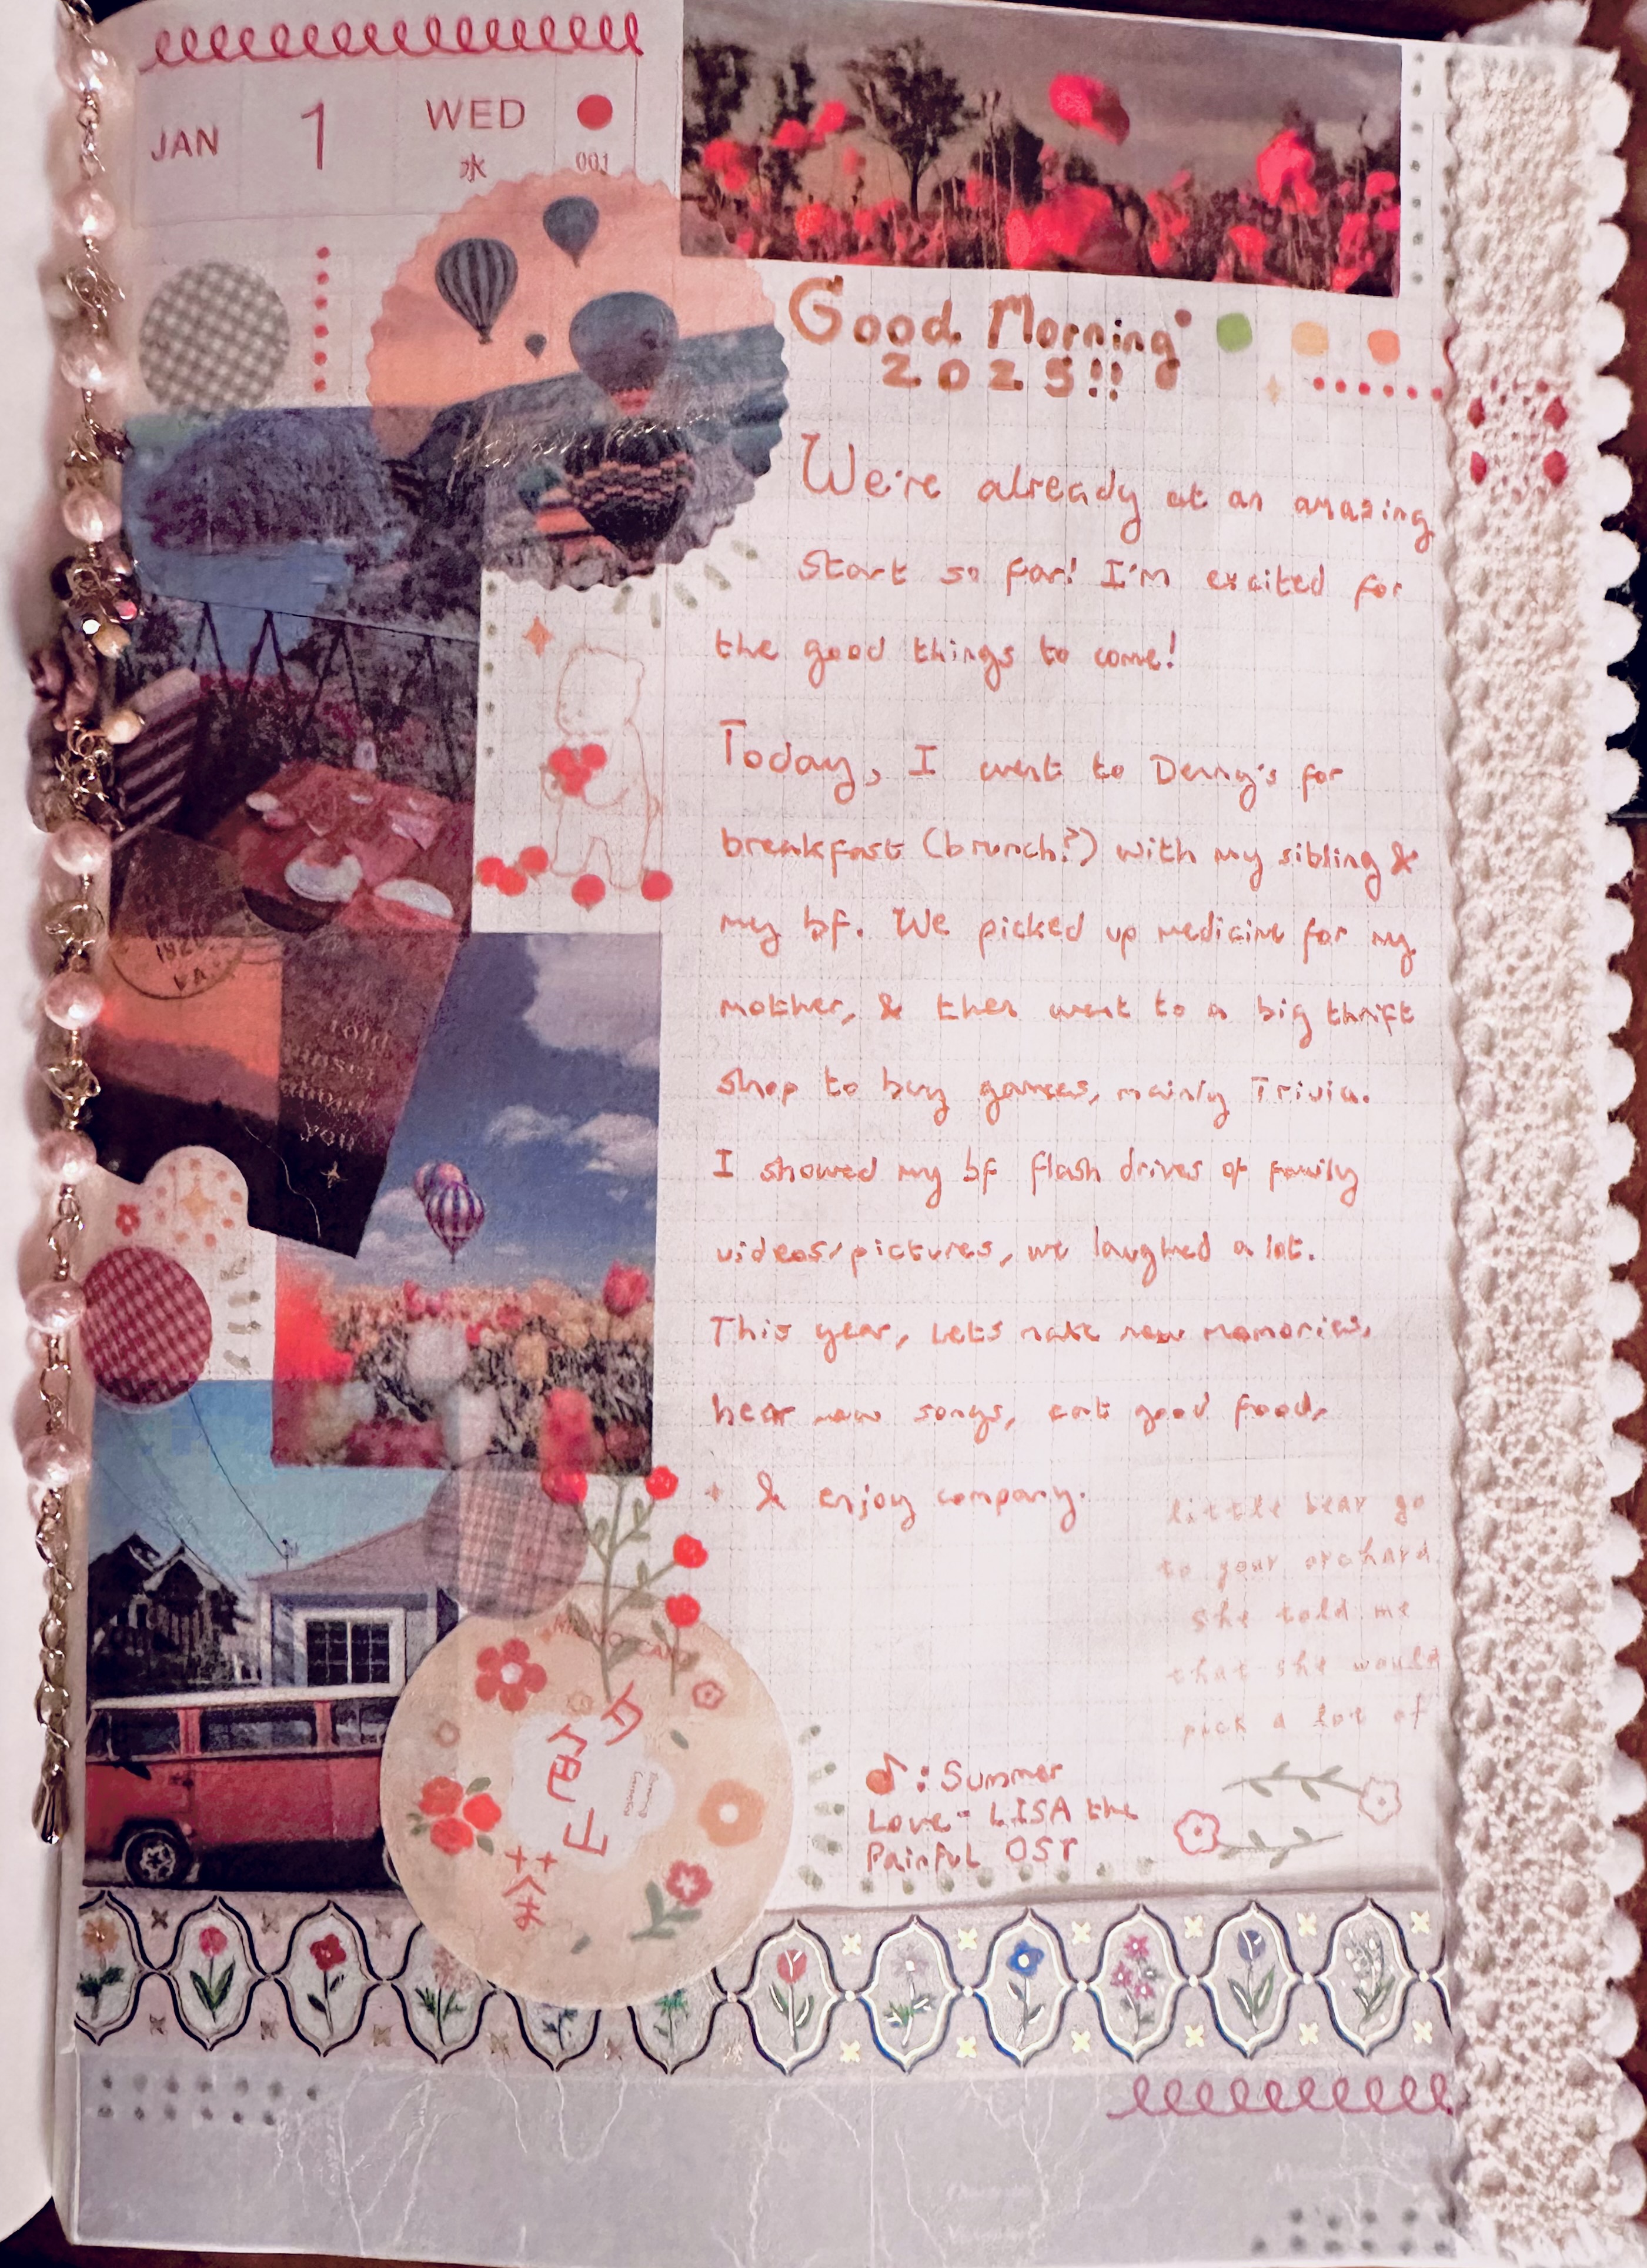 JAN 1 WED
水 001
Good Morning
2025!!
We're already at an amazing
start so far! I'm excited for
the good things to come!
Today, I went to Denny's for
breakfast (brunch?) with my sibling &
my bf. We picked up medicine for my
mother, & then went to a big thrift
shop to buy games, mainly Trivia.
I showed my bf flash drives of family
videos/pictures, we laughed a lot.
This year, Lets make new memories,
hear new songs, eat good food,
& enjoy company.
little bear go
to your orchard
she told me
that she would
pick a lot of
♪: Summer
Love - LISA the
Painful OST
VA.
you